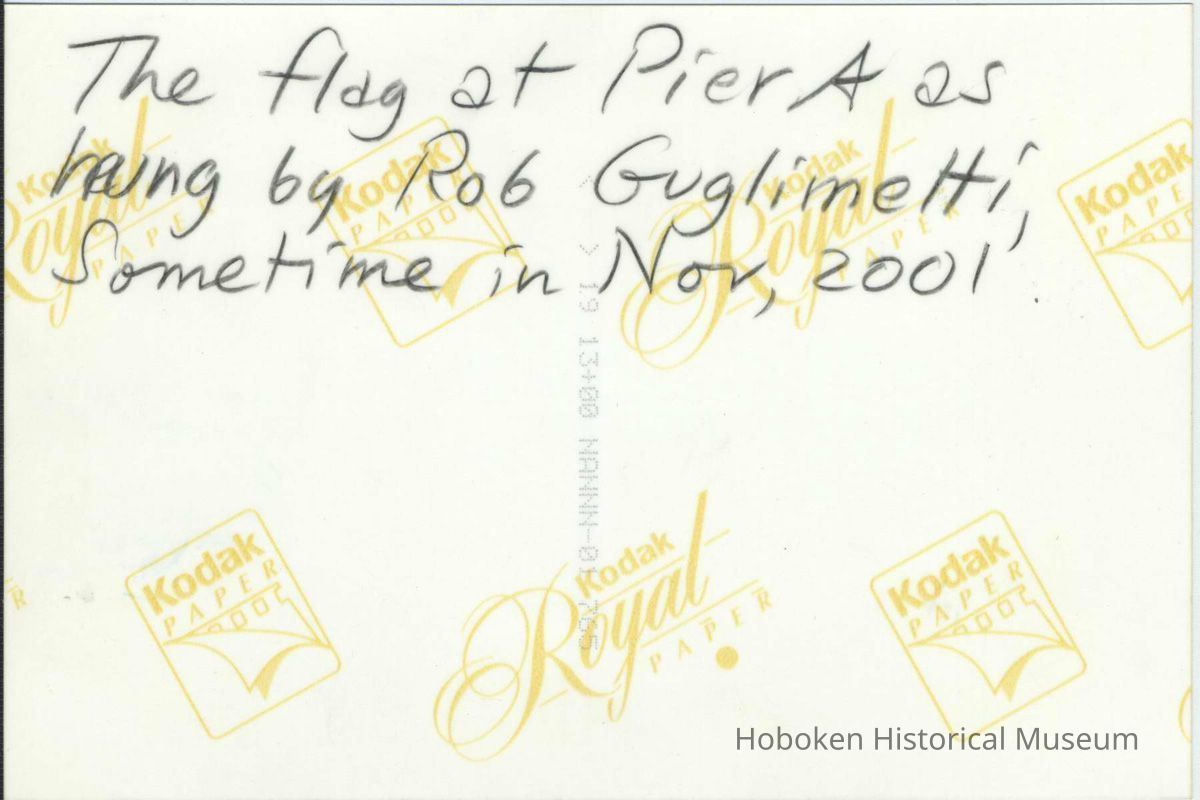 The flag at Pier A as
hung by Rob Guglimetti,
Sometime in Nov, 2001.
Kodak
Royal
PAPER
Kodak
PAPER
Kodak
Royal
PAPER
Kodak
PAPER
Kodak
PAPER
Kodak
Royal
PAPER
Kodak
PAPER
Hoboken Historical Museum